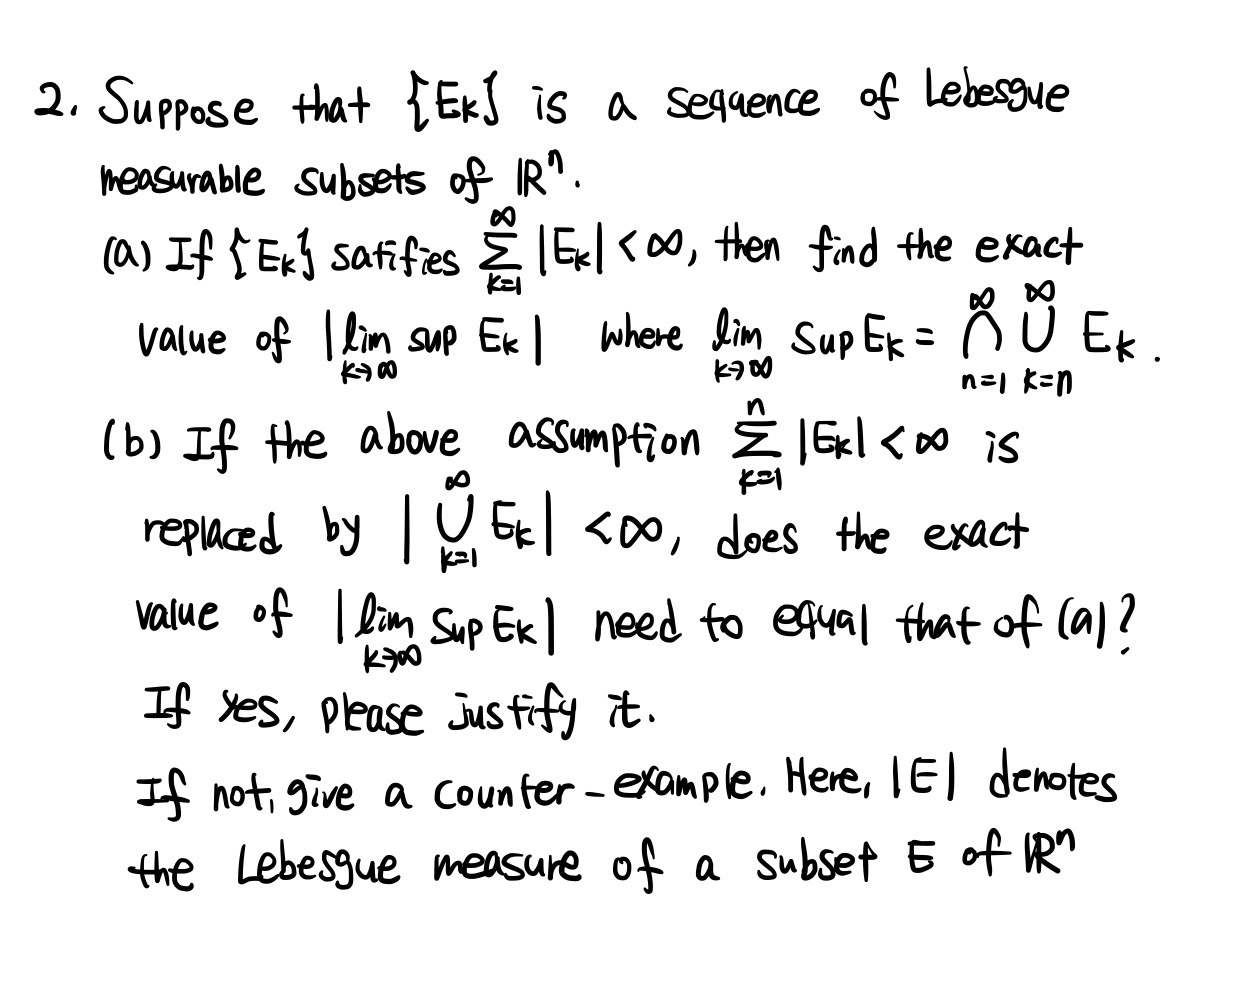 2. Suppose that {E_k} is a sequence of Lebesgue
measurable subsets of ℝ^n.
(a) If {E_k} satifies ∑_{k=1}^{∞} |E_k| < ∞, then find the exact
value of |lim_{k→∞} sup E_k| where lim_{k→∞} sup E_k = ⋂_{n=1}^{∞} ⋃_{k=n}^{∞} E_k.
(b) If the above assumption ∑_{k=1}^{n} |E_k| < ∞ is
replaced by |⋃_{k=1}^{∞} E_k| < ∞, does the exact
value of |lim_{k→∞} sup E_k| need to equal that of (a)?
If yes, please justify it.
If not, give a counter-example. Here, |E| denotes
the Lebesgue measure of a subset E of ℝ^n